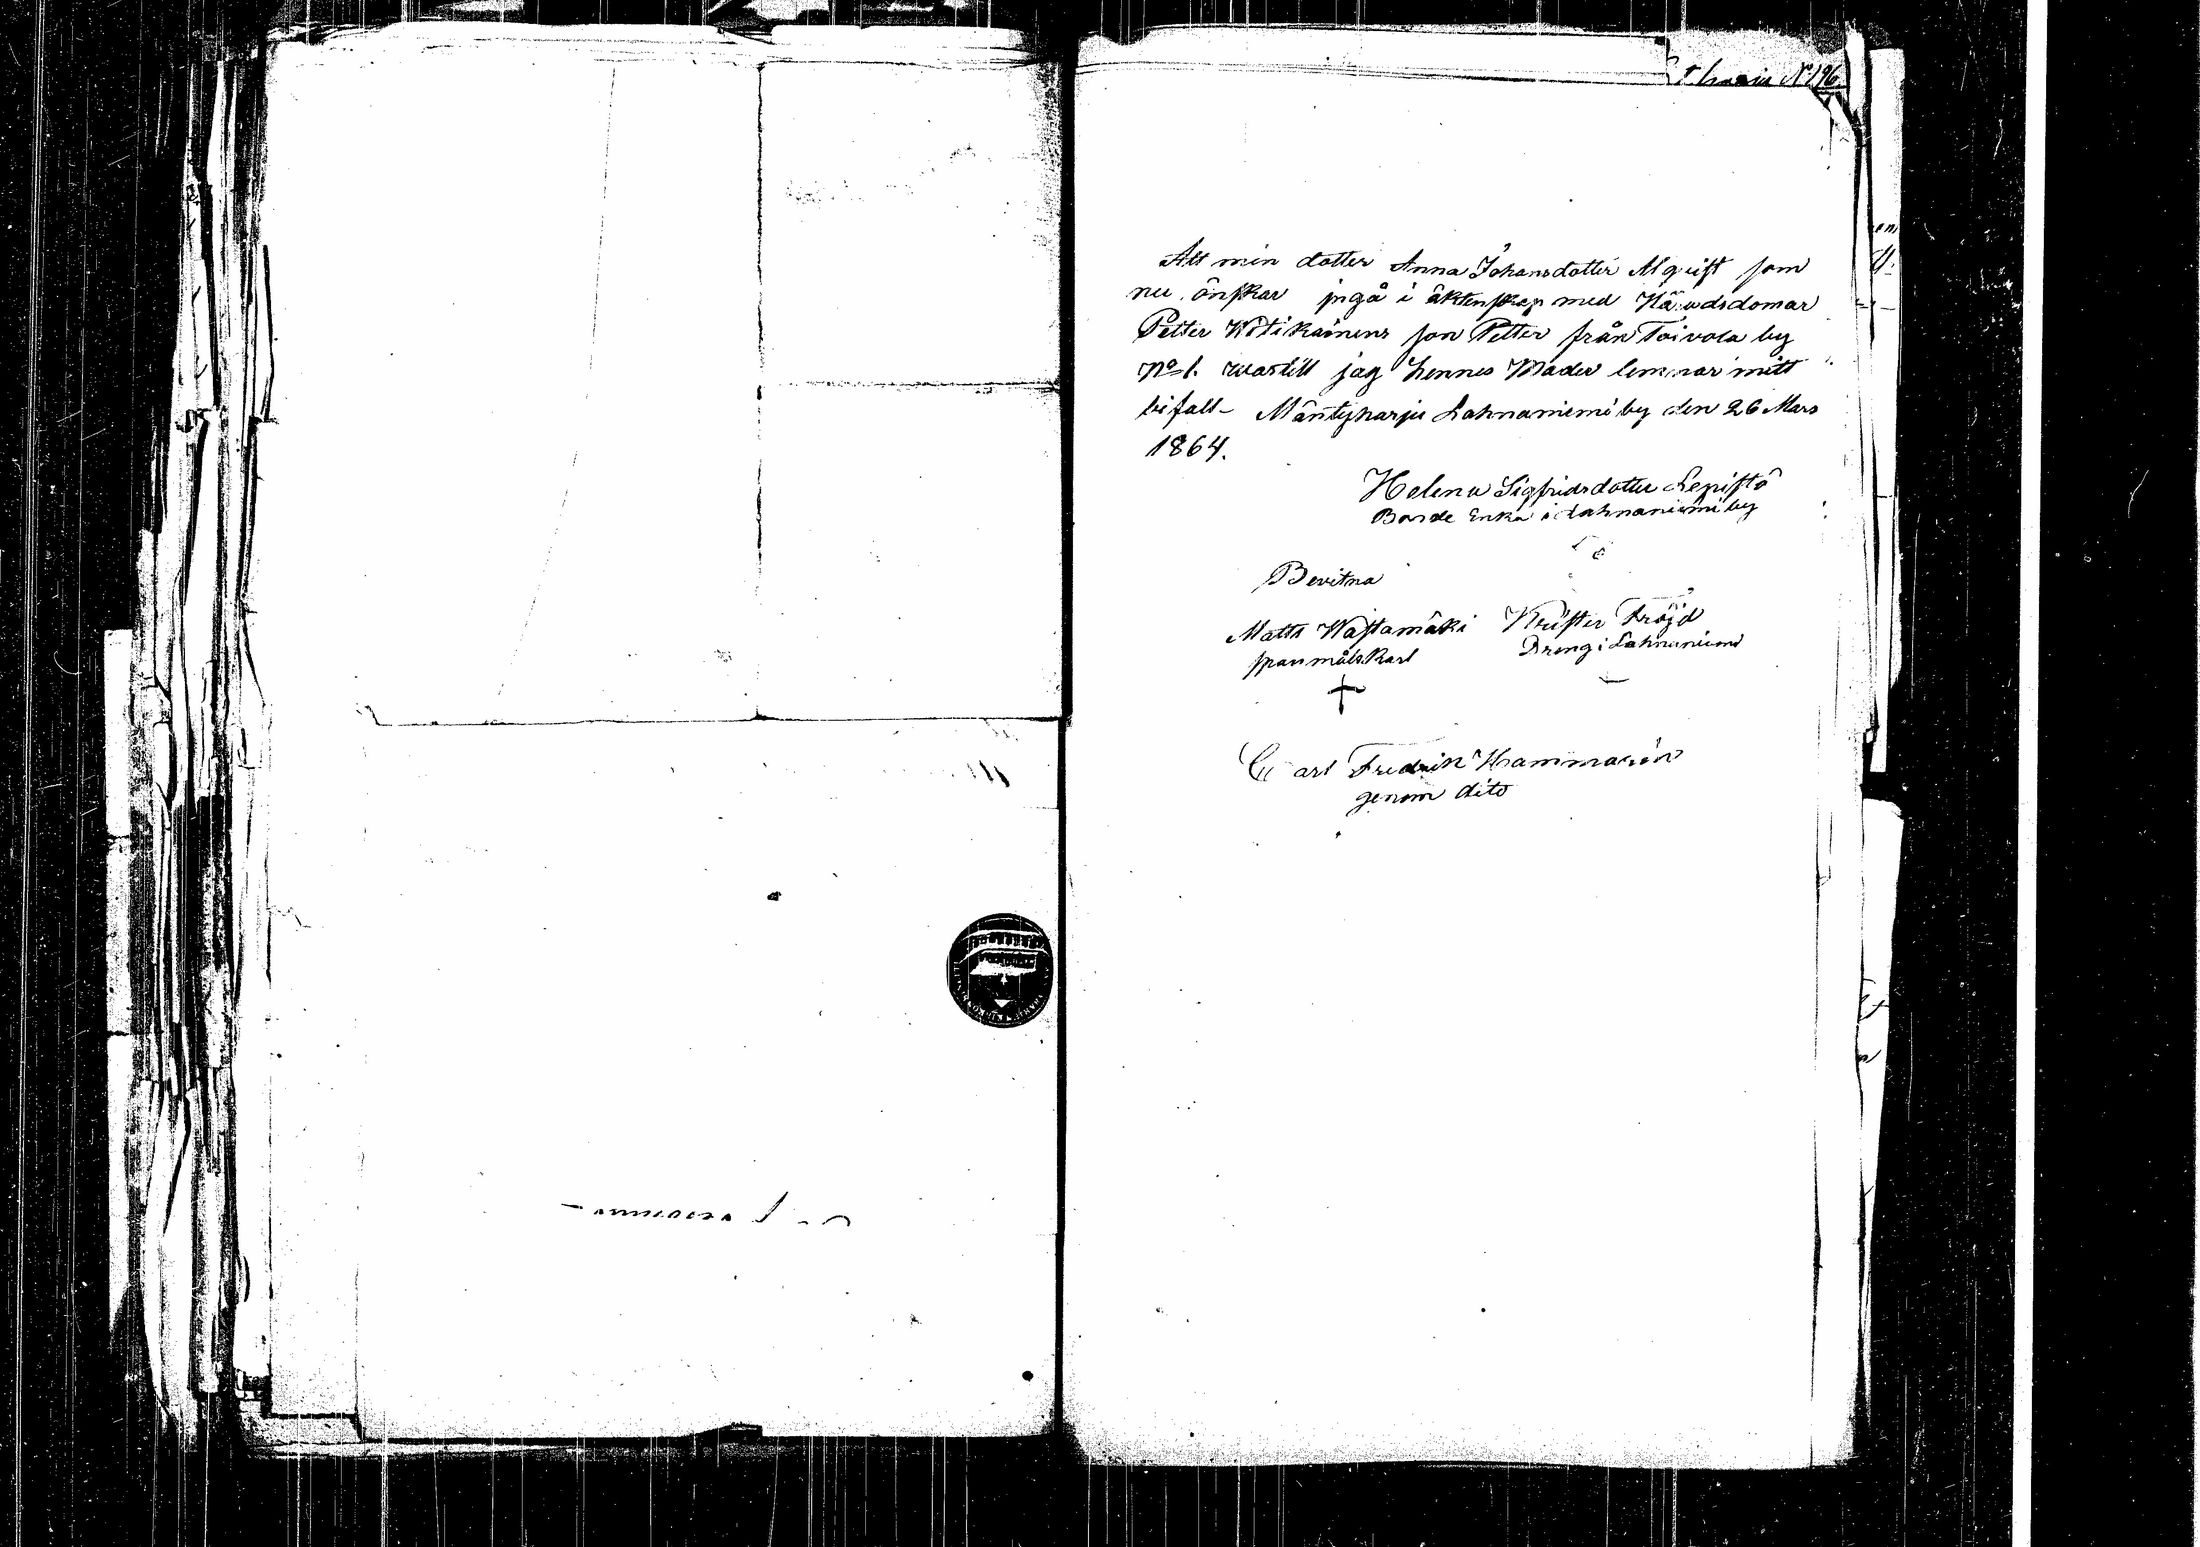 N:196.
Att min dotter Anna Johansdotter Algrift som
nu önskar ingå i äktenskap med Häradsdomar
Petter Wotikainens son Petter från Toivola by
No 1. wartill jag hennes Moder lemnar mitt
bifall - Mäntyharju Lahnaniemi by den 26 Mars
1864.
Helena Sigfridsdotter Lepistö
Bonde Enka i Lahnaniemi by
Bevitna
Matts Wastamäki Krister Fröjd
spanmålskarl Dreng i Lahnaniemi
Carl Fredrik
genom dito